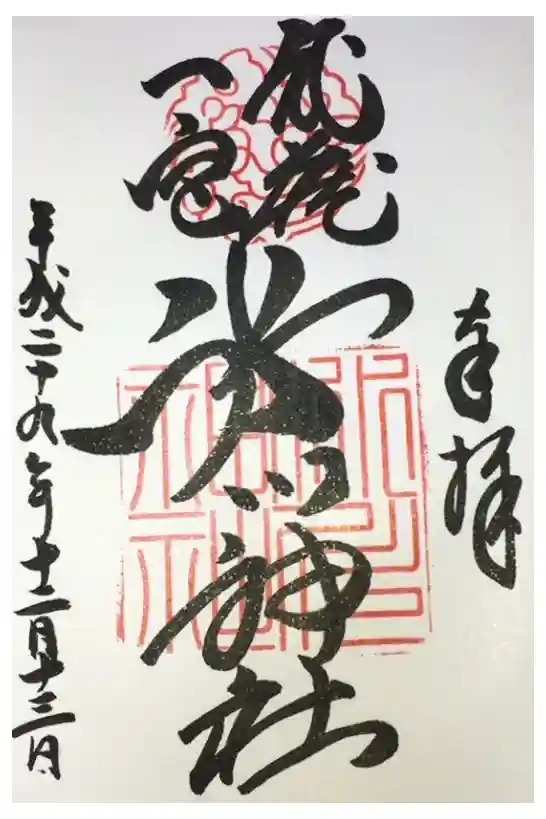 奉拝
武蔵
一宮
氷川
神社
平成二十九年十二月十三日